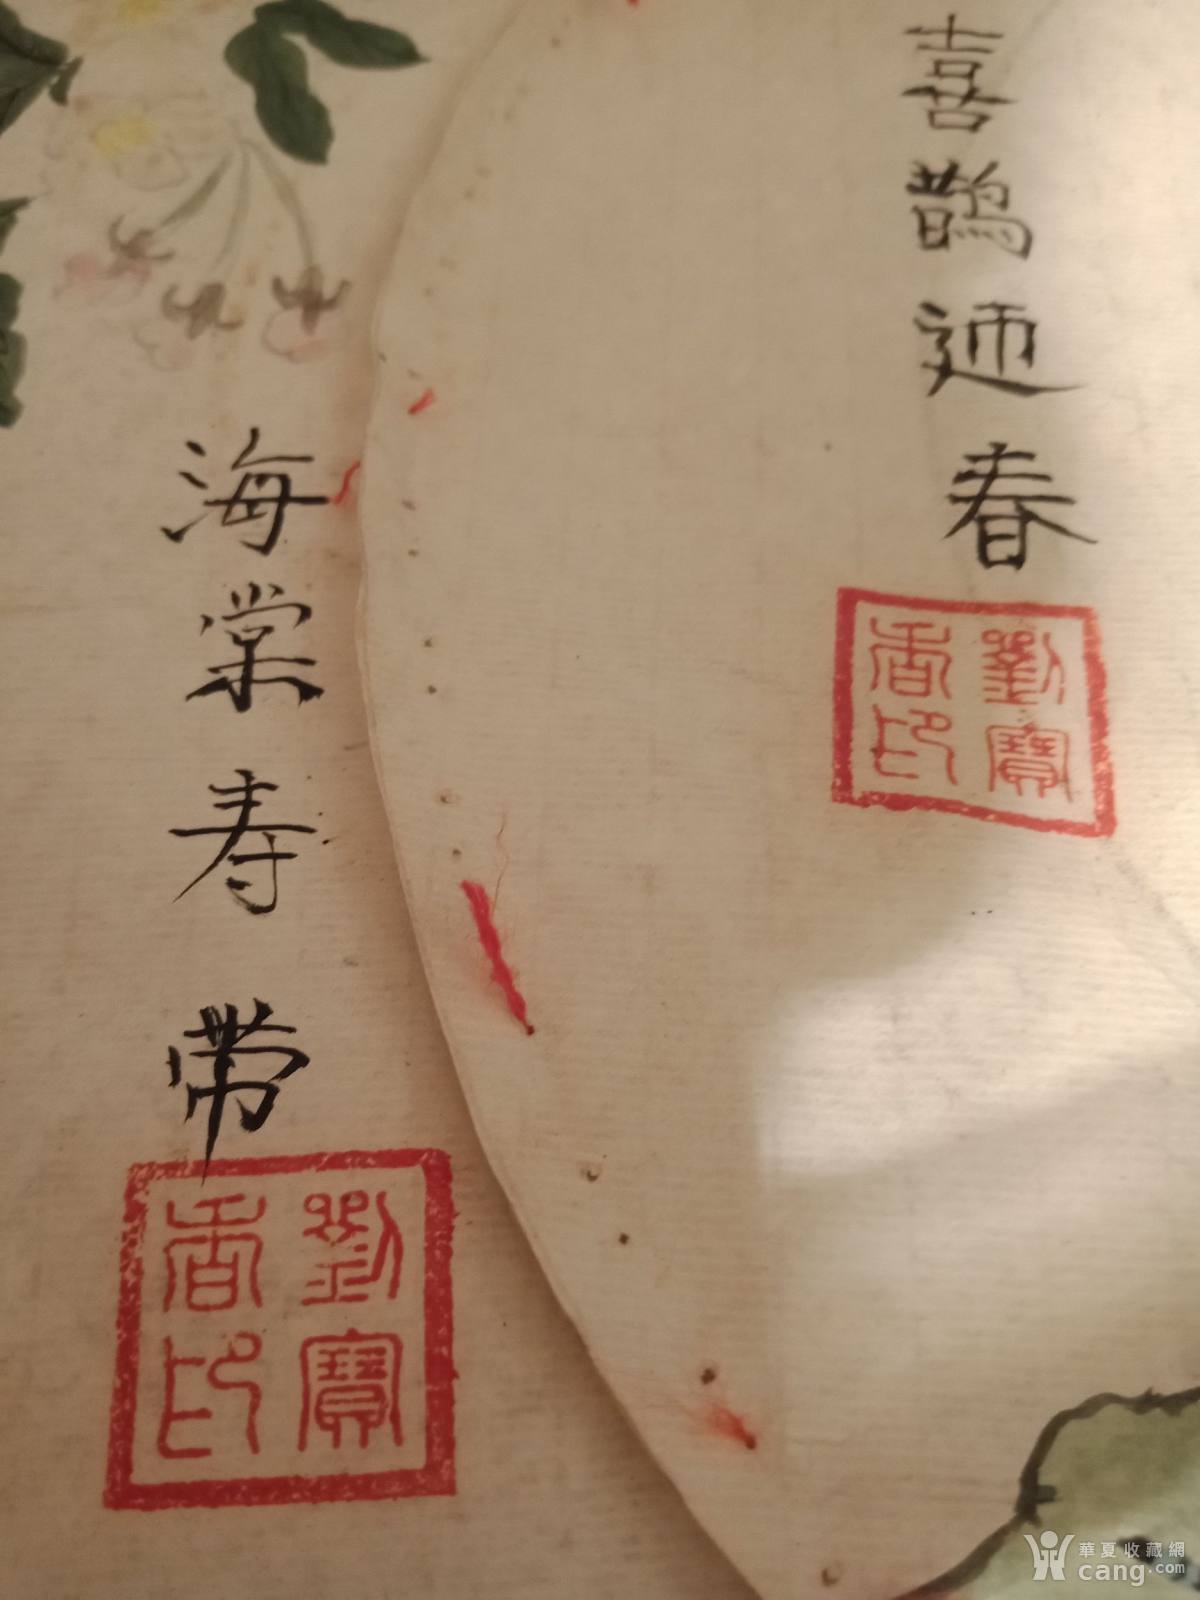 喜鵲迎春
劉寶
香印
海棠寿带
劉寶
香印
華夏收藏網
cang.com